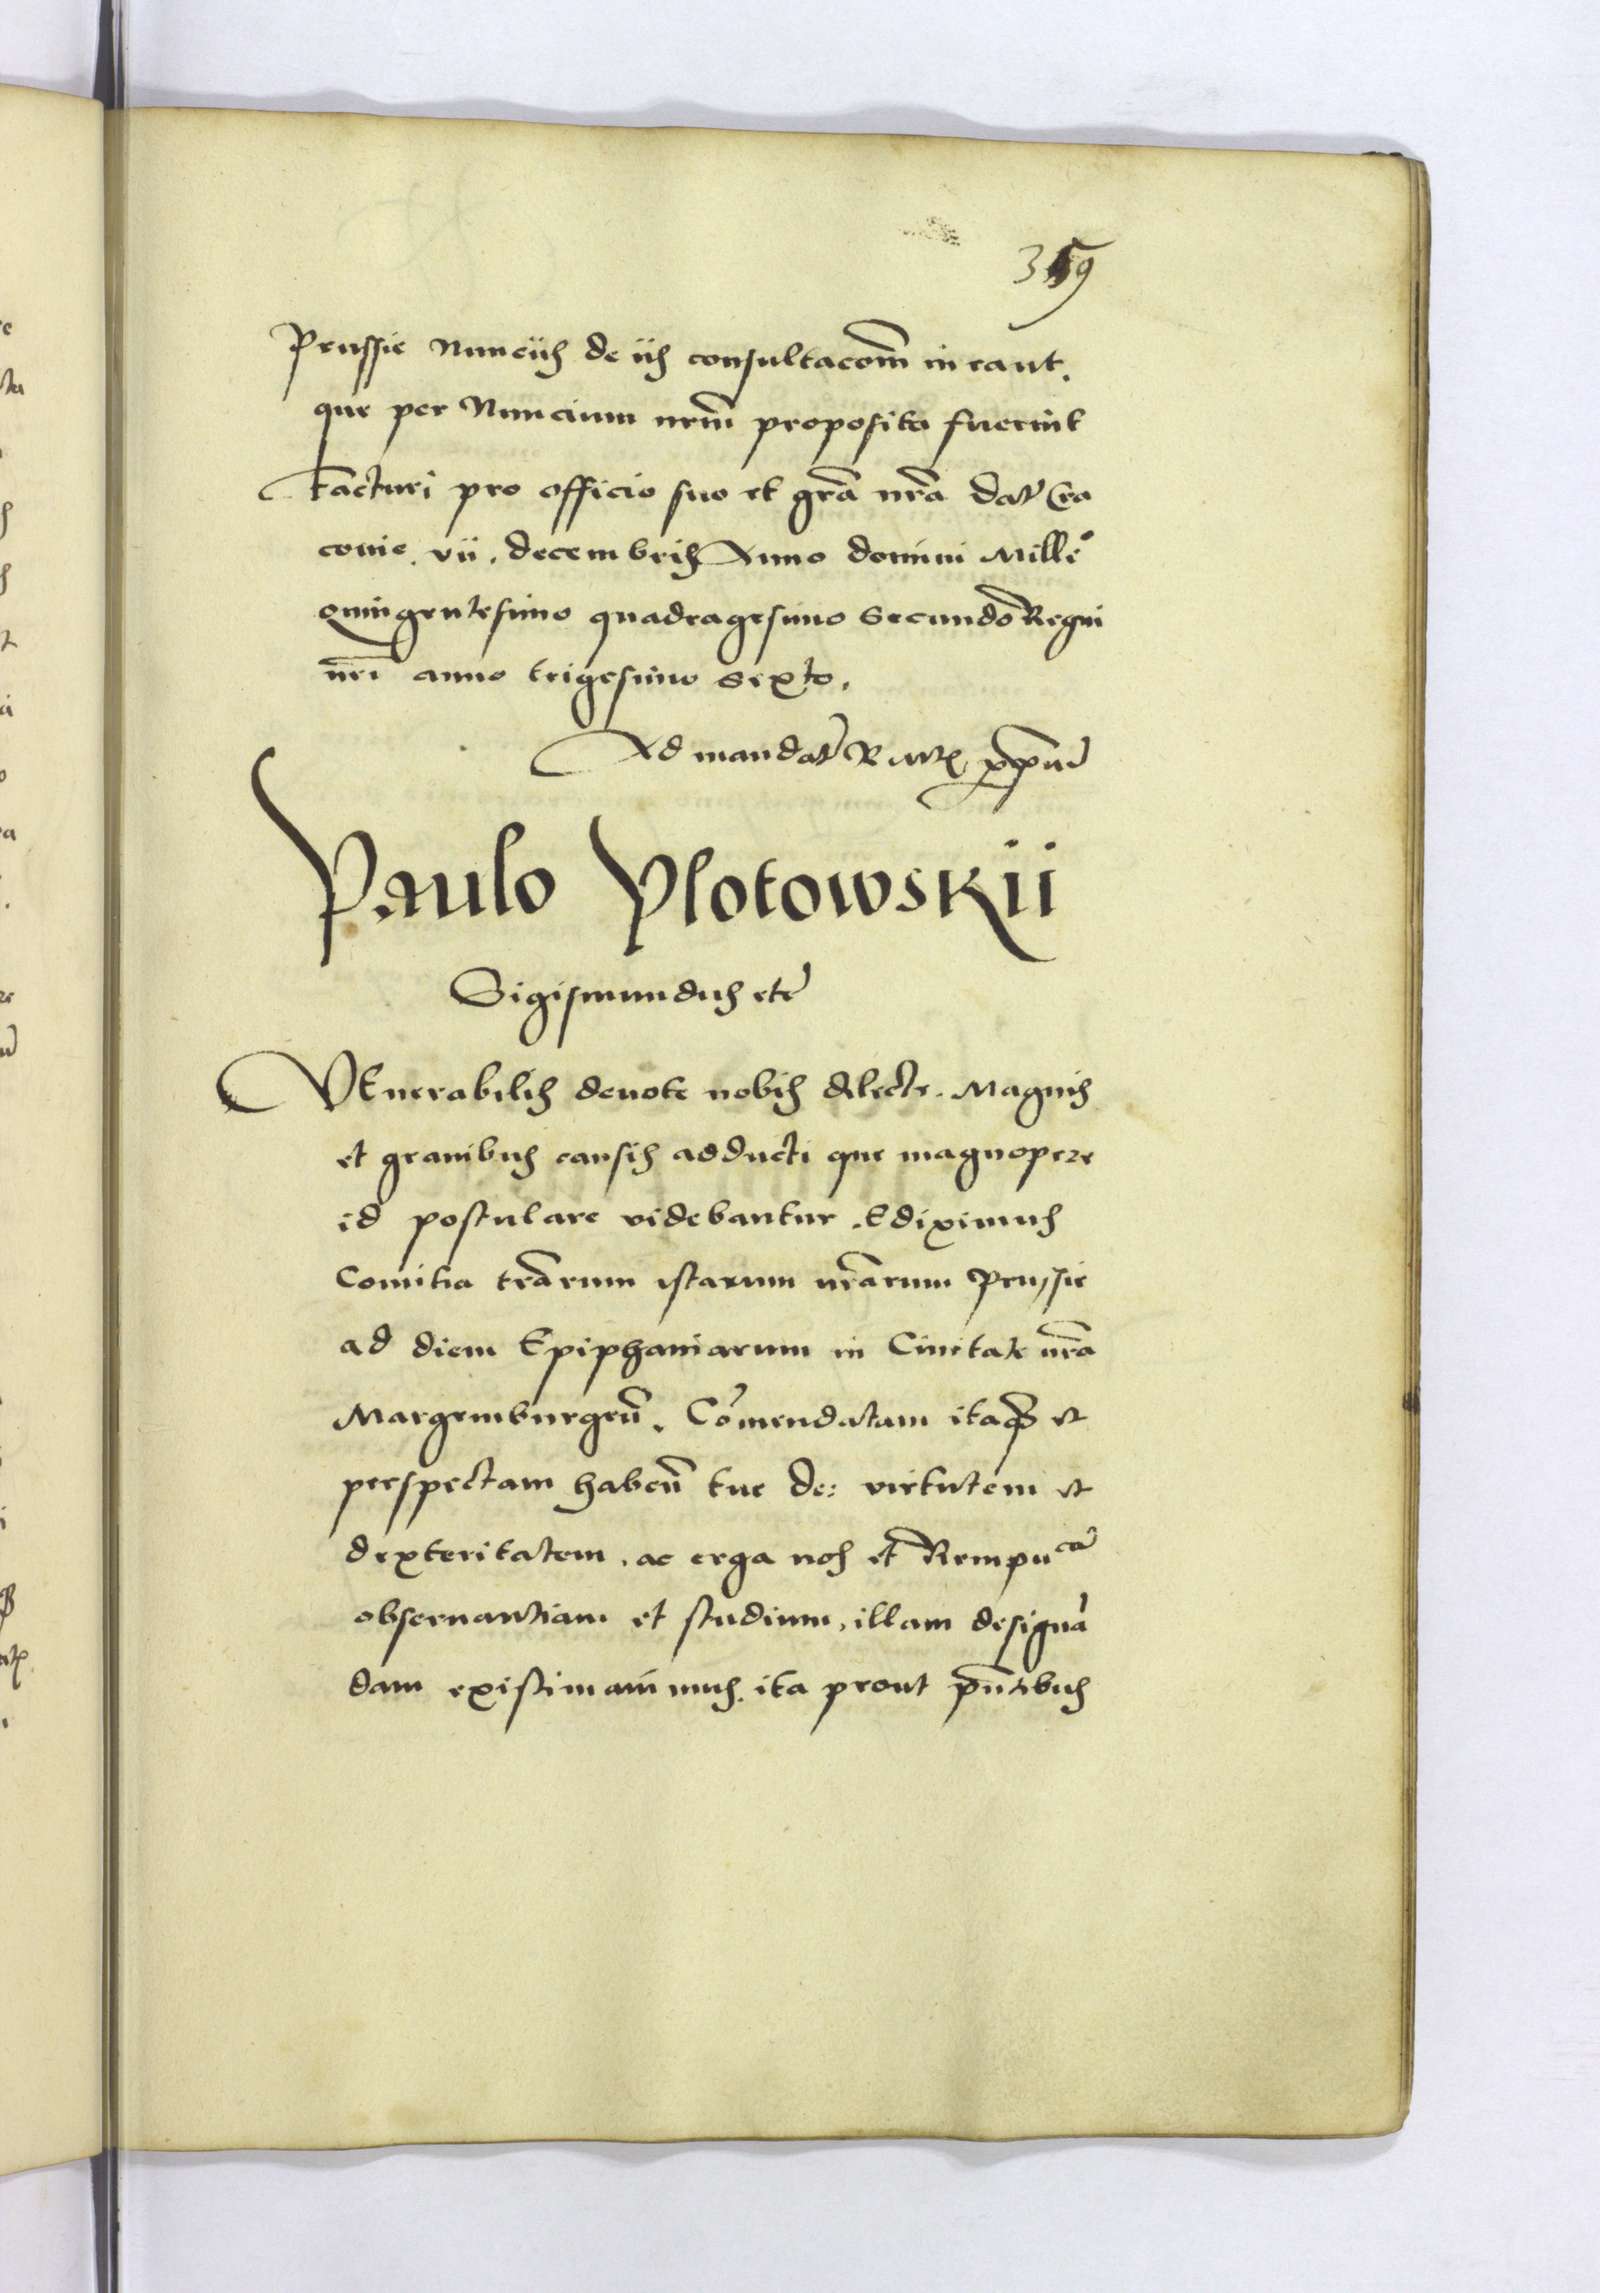 359
Prussie Nuncijs de ijs consultacõm ineant.
que per Nuncium nrm̃ proposita fuerint
Facturi pro officio suo et grã nrã dat̃ Cra
couie. vii. decembris Anno domini Mill̃o
quingentesimo quadragesimo secundo Regni
nrĩ anno trigesimo sexto.
Ad mandat̃ R Mtis
Paulo Plotowskii
Sigismundus etc̃
VEnerabilis deuote nobis dilecte. Magnis
et grauibus causis adducti que magnopere
id postulare videbantur. Ediximus
Comitia trãrum istarum nrãrum Prussie
ad diem Epiphaniarum in Ciuitate nrã
Margemburgen̄. Com̃endatam itaq̃ et
perspectam haben̄ tue de: virtutem et
dexteritatem. ac erga nos et Rempucã
obseruantiam et studium, illam designã
dam existimauimus. ita prout pñtibus